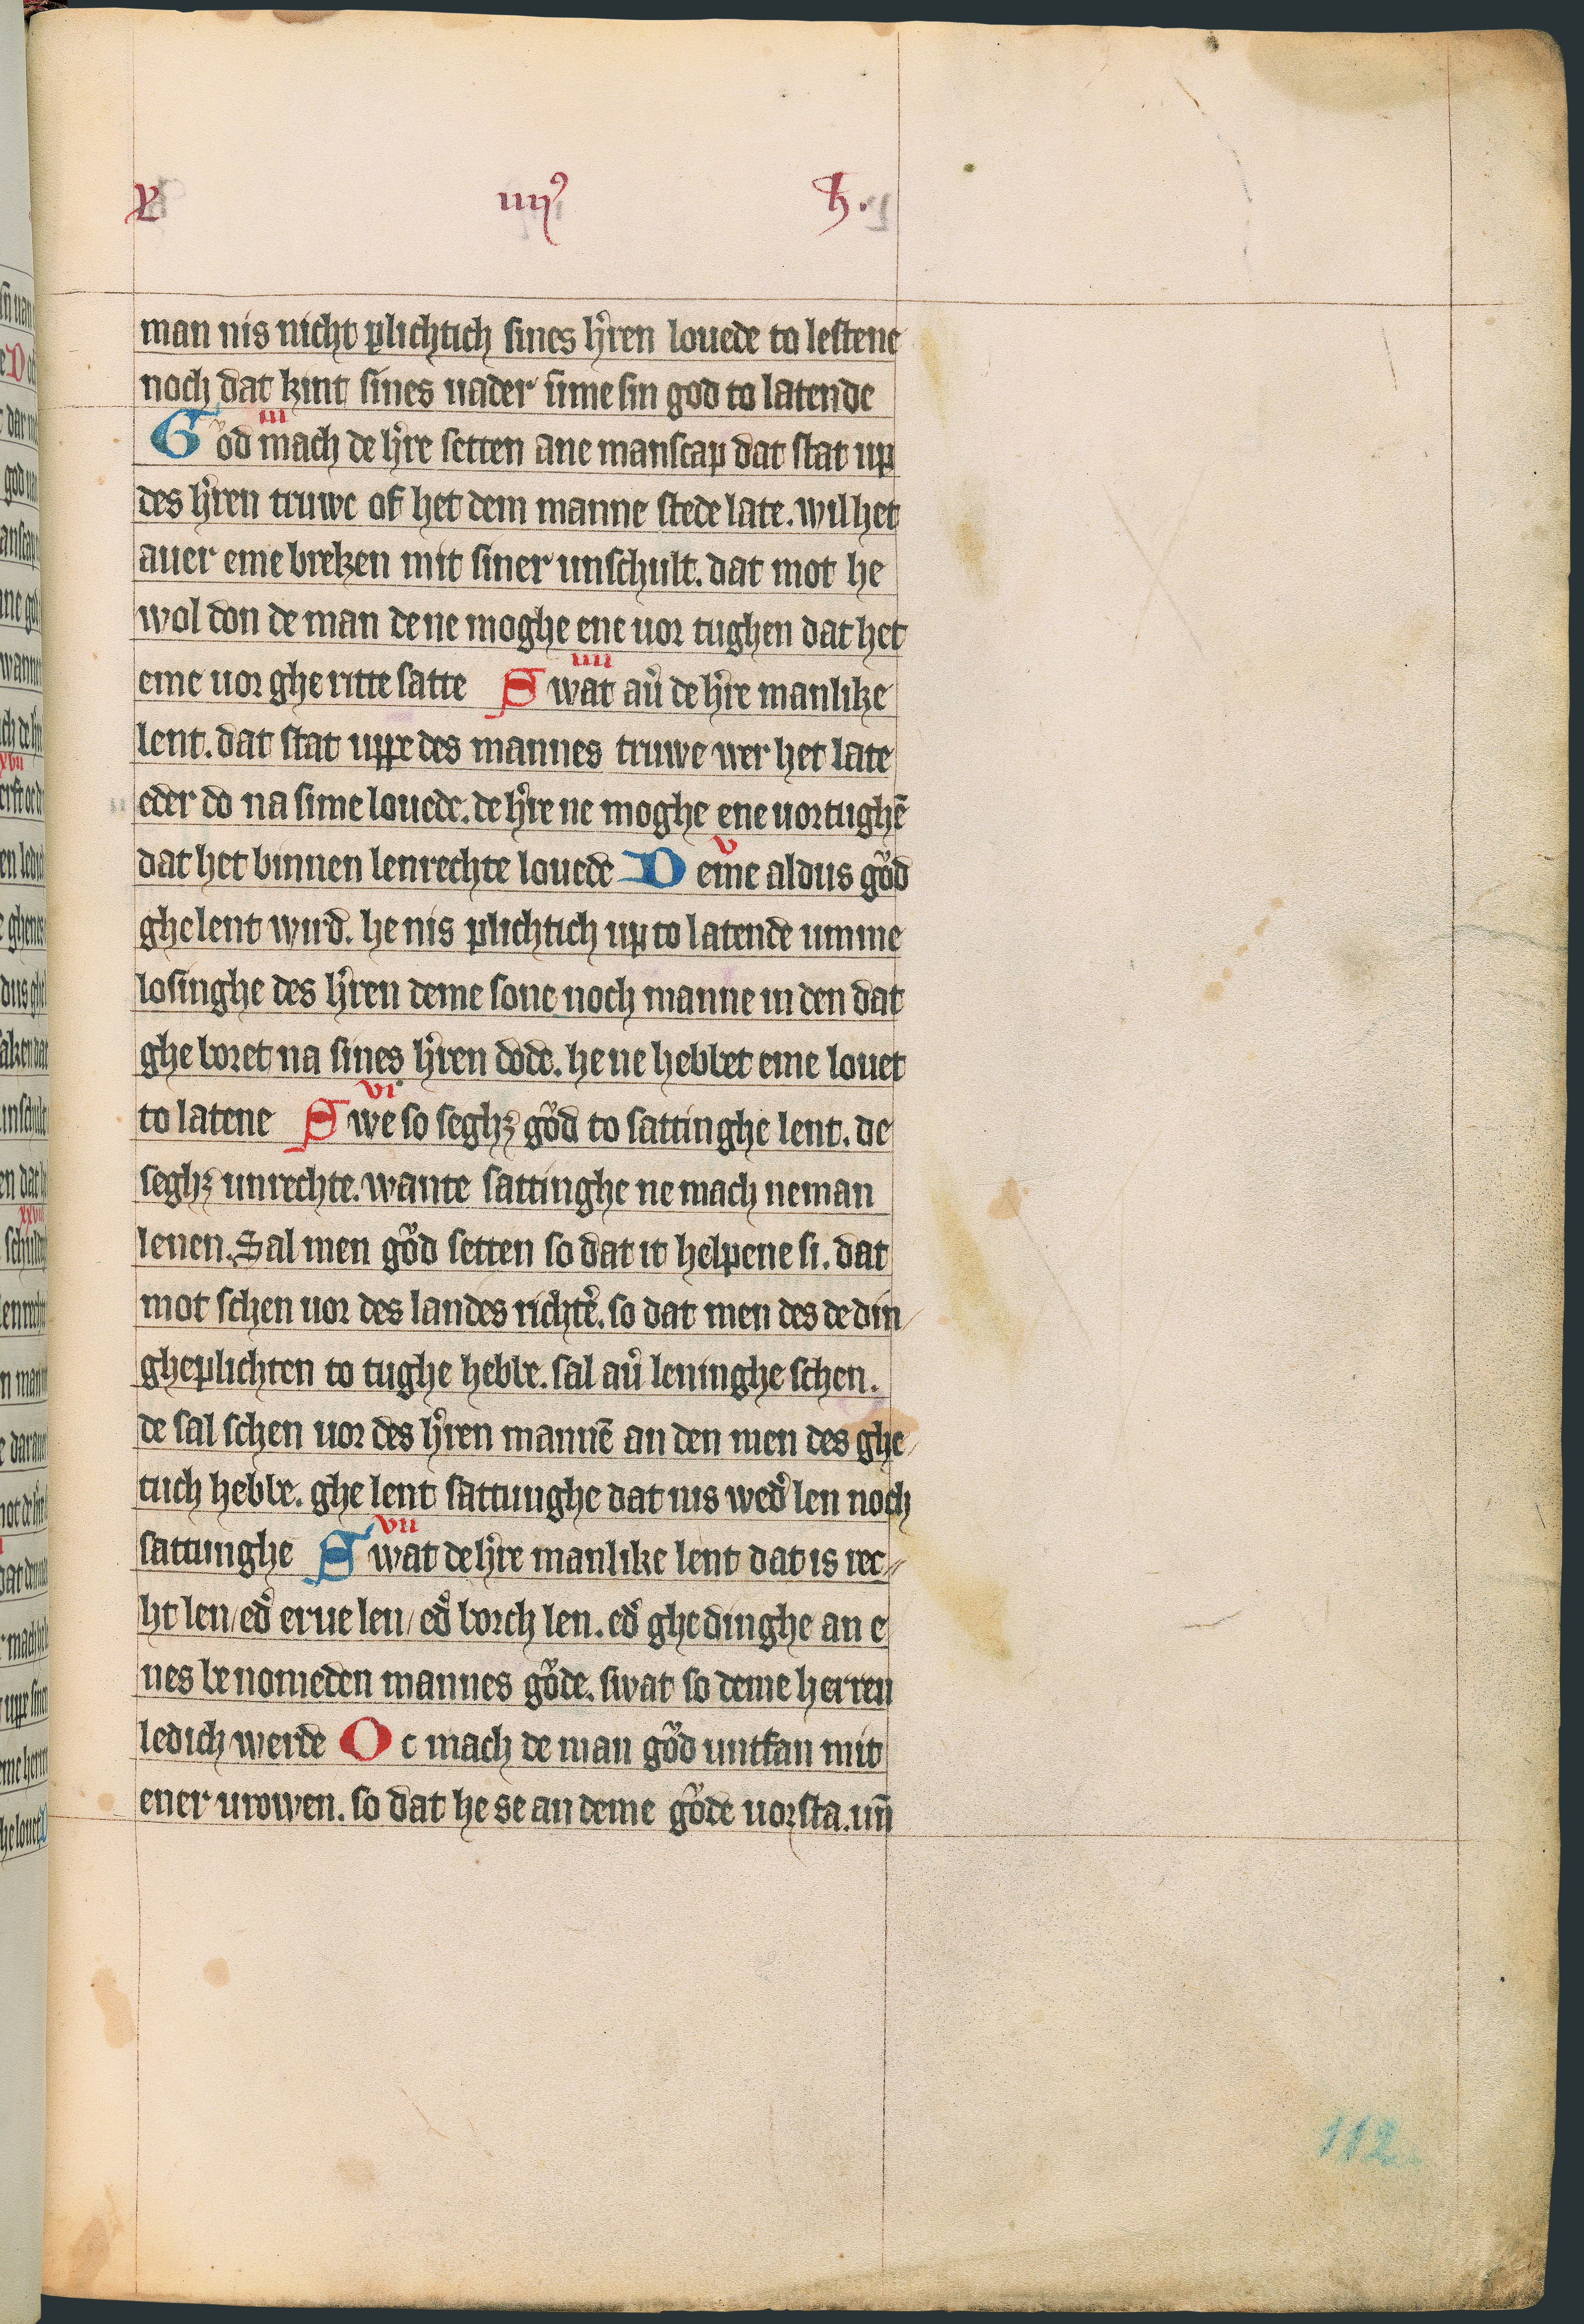 X iiijꝰ h.
man nis nicht plichtich sines hͤren louede to lestene
noch dat kint sines uader sime sin god to latende
iii
Gͦod mach de hͤre setten ane manscap dat stat up
des hͤren truwe of het dem manne stede late. wil het
auer eme breken mit siner unschult. dat mot he
wol don de man de ne moghe ene uor tughen dat het
iiii
eme uor gheritte satte Swat auͤ de hͤre manlike
lent. dat stat uppe des mannes truwe wer het late
eder do na sime louede. de hͤre ne moghe ene uortughē
v
dat het binnen lenrechte louede Deme aldus gͦod
ghelent wird. he nis plichtich up to latende umme
losinghe des hͤren deme sone noch manne in den dat
ghe boret na sines hͤren dode. he ne hebbet eme louet
vi
to latene Swe so seghꝫ gͦod to sattinghe lent. de
seghꝫ unrechte. wante sattinghe ne mach neman
lenen. Sal men gͦod setten so dat it helpene si. dat
mot schen uor des landes richtͤ. so dat men des de din/
gheplichten to tughe hebbe. sal auͤ leninghe schen.
de sal schen uor des hͤren mannē an den men des ghe/
tuch hebbe. ghe lent sattunghe dat nis wedͤ len noch
vii
sattunghe Swat de hͤre manlike lent dat is rec//
ht len/ edͤ erue len/ edͤ borch len. edͤ ghedinghe an e
nes benomeden mannes gͦode. swat so deme herren
ledich werde Oc mach de man gͦod untfan mit
ener urowen. so dat he se an deme gͦode uorsta. un̄
112